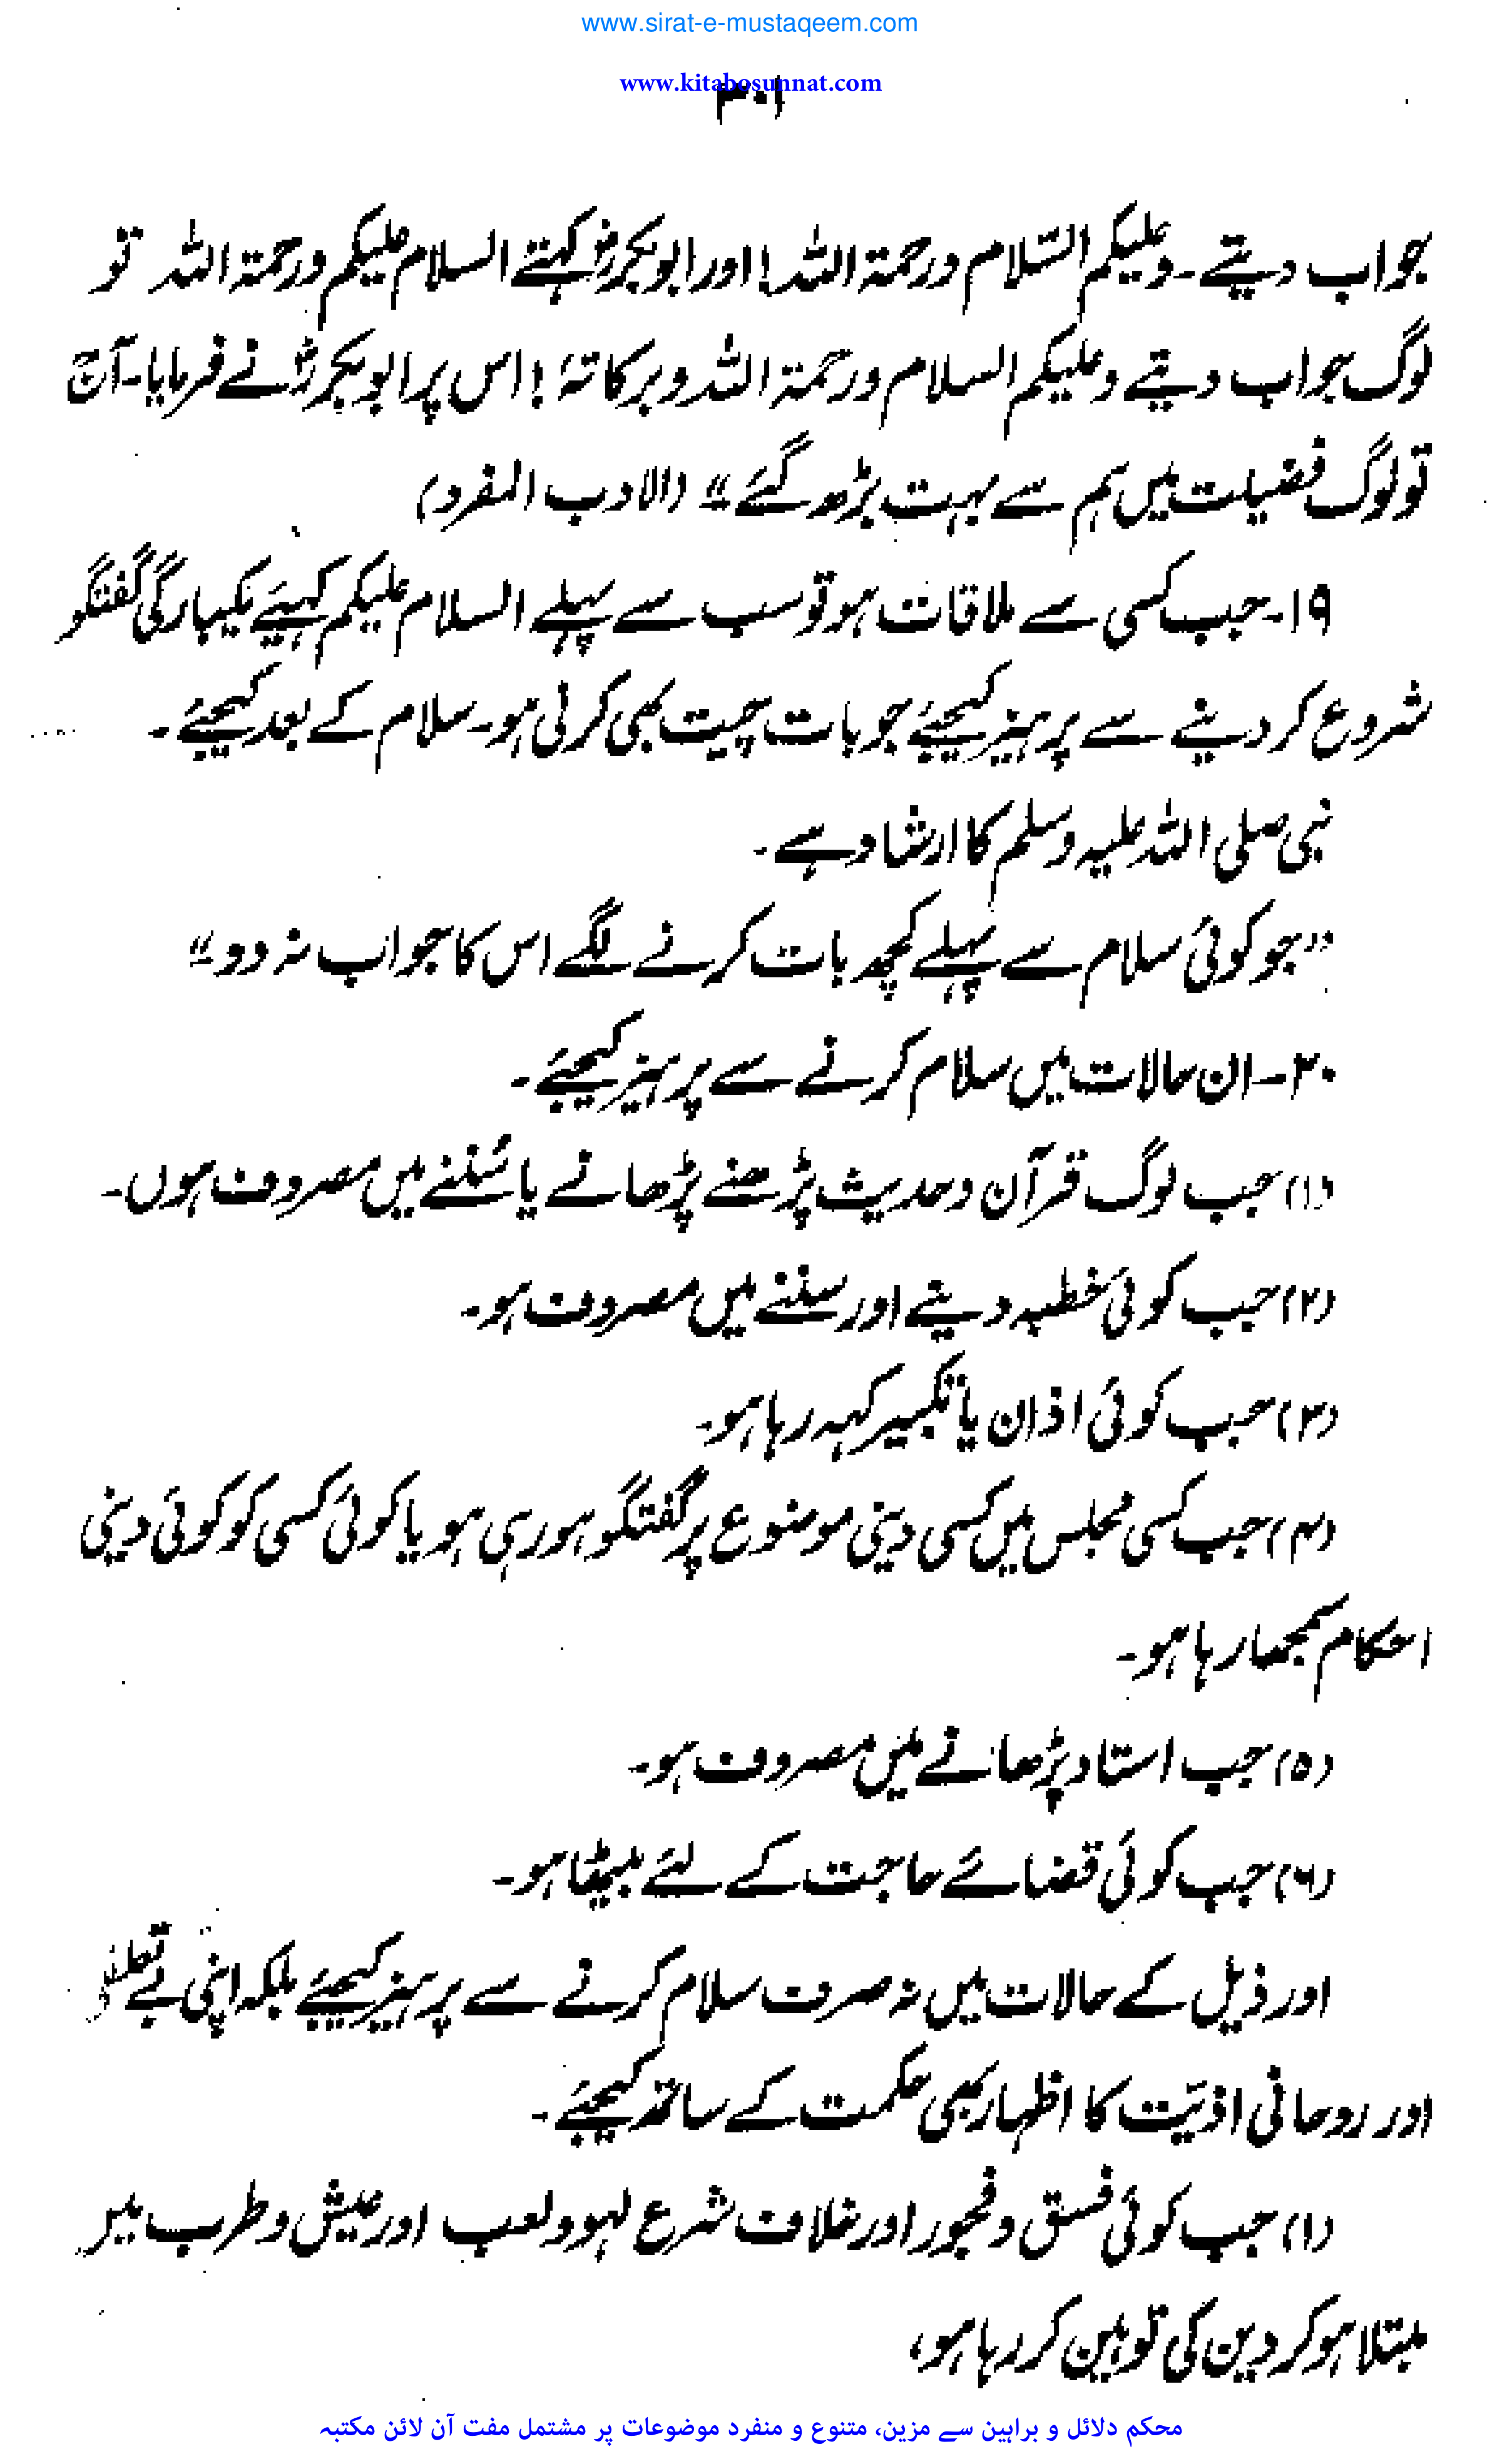 www.sirat-e-mustaqeem.com
www.kitabosunnat.com
۳۰۱
جواب دیتے ۔ وعلیکم السّلام ورحمۃ اللہ! اور ابوبکرؓ کہتے السلام علیکم ورحمۃ اللہ تو
لوگ جواب دیتے وعلیکم السلام ورحمۃ اللہ وبرکاتہٗ! اس پر ابوبکرؓ نے فرمایا۔ آج
تو لوگ فضیلت میں ہم سے بہت بڑھ گئے" (الادب المفرد)
۱۹۔ جب کسی سے ملاقات ہو تو سب سے پہلے السلام علیکم کہیئے یکبارگی گفتگو
شروع کر دینے سے پرہیز کیجیئے جو بات چیت بھی کرنی ہو۔ سلام کے بعد کیجیئے ۔
نبی صلی اللہ علیہ وسلم کا ارشاد ہے ۔
"جو کوئی سلام سے پہلے کچھ بات کرنے لگے اس کا جواب نہ دو"
۲۰۔ ان حالات میں سلام کرنے سے پرہیز کیجیئے ۔
(۱) جب لوگ قرآن وحدیث پڑھنے پڑھانے یا سُننے میں مصروف ہوں۔
(۲) جب کوئی خطبہ دینے اور سننے میں مصروف ہو۔
(۳) جب کوئی اذان یا تکبیر کہہ رہا ہو۔
(۴) جب کسی مجلس میں کسی دینی موضوع پر گفتگو ہو رہی ہو یا کوئی کسی کو کوئی دینی
احکام سمجھا رہا ہو۔
(۵) جب استاد پڑھانے میں مصروف ہو۔
(۶) جب کوئی قضائے حاجت کے لئے بیٹھا ہو۔
اور ذیل کے حالات میں نہ صرف سلام کرنے سے پرہیز کیجیئے بلکہ اپنی بے
اور روحانی اذیّت کا اظہار بھی حکمت کے ساتھ کیجیئے ۔
(۱) جب کوئی فسق وفجور اور خلاف شرع لہو ولعب اور عیش وطرب میں
مبتلا ہو کر دین کی توہین کر رہا ہو،
محکم دلائل و براہین سے مزین، متنوع و منفرد موضوعات پر مشتمل مفت آن لائن مکتبہ